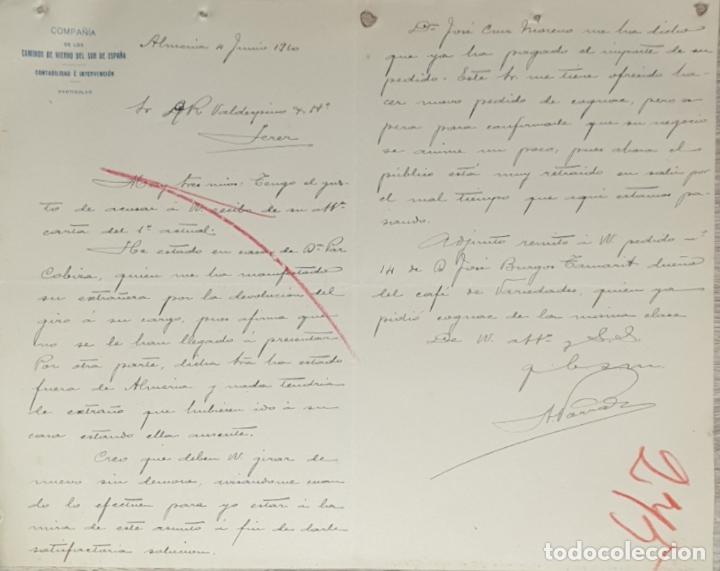 COMPAÑÍA
DE LOS
CAMINOS DE HIERRO DEL SUR DE ESPAÑA
CONTABILIDAD É INTERVENCIÓN
PARTICULAR
Almeria 4 Junio 1910
Sr A R Valdespino y Hº
Jerez
Muy Sres mios: Tengo el gus-
to de acusar á VV. recibo de su attª
carta del 1º actual.
He estado en casa de Dª Paz
Cobira, quien me ha manifestado
su extrañeza por la devolucion del
giro á su cargo, pues afirma que
no se le han llegado á presentar
Por otra parte, dicha Sra ha estado
fuera de Almeria y nada tendria
de extraño que hubiesen ido á su
casa estando ella ausente.
Creo que deben VV. girar de
nuevo sin demora, avisandome cuan
do lo efectuen para yo estar á la
mira de este asunto á fin de darle
satisfactoria solucion.
Dn José Cruz Moreno me ha dicho
que ya ha pagado el importe de su
pedido. Este Sr. me tiene ofrecido ha-
cer nuevo pedido de cognac, pero es
pera para confirmarle que su negocio
se anime un poco, pues ahora el
público está muy retraido en salir por
el mal tiempo que aqui estamos pa-
sando.
Adjunto remito á VV pedido nº
14 de D José Burgos Tamarit dueño
del café de Variedades, quien ya
pidió cognac de la misma clase
De VV. attº y S.S.
q b s m
245
todocoleccion.net